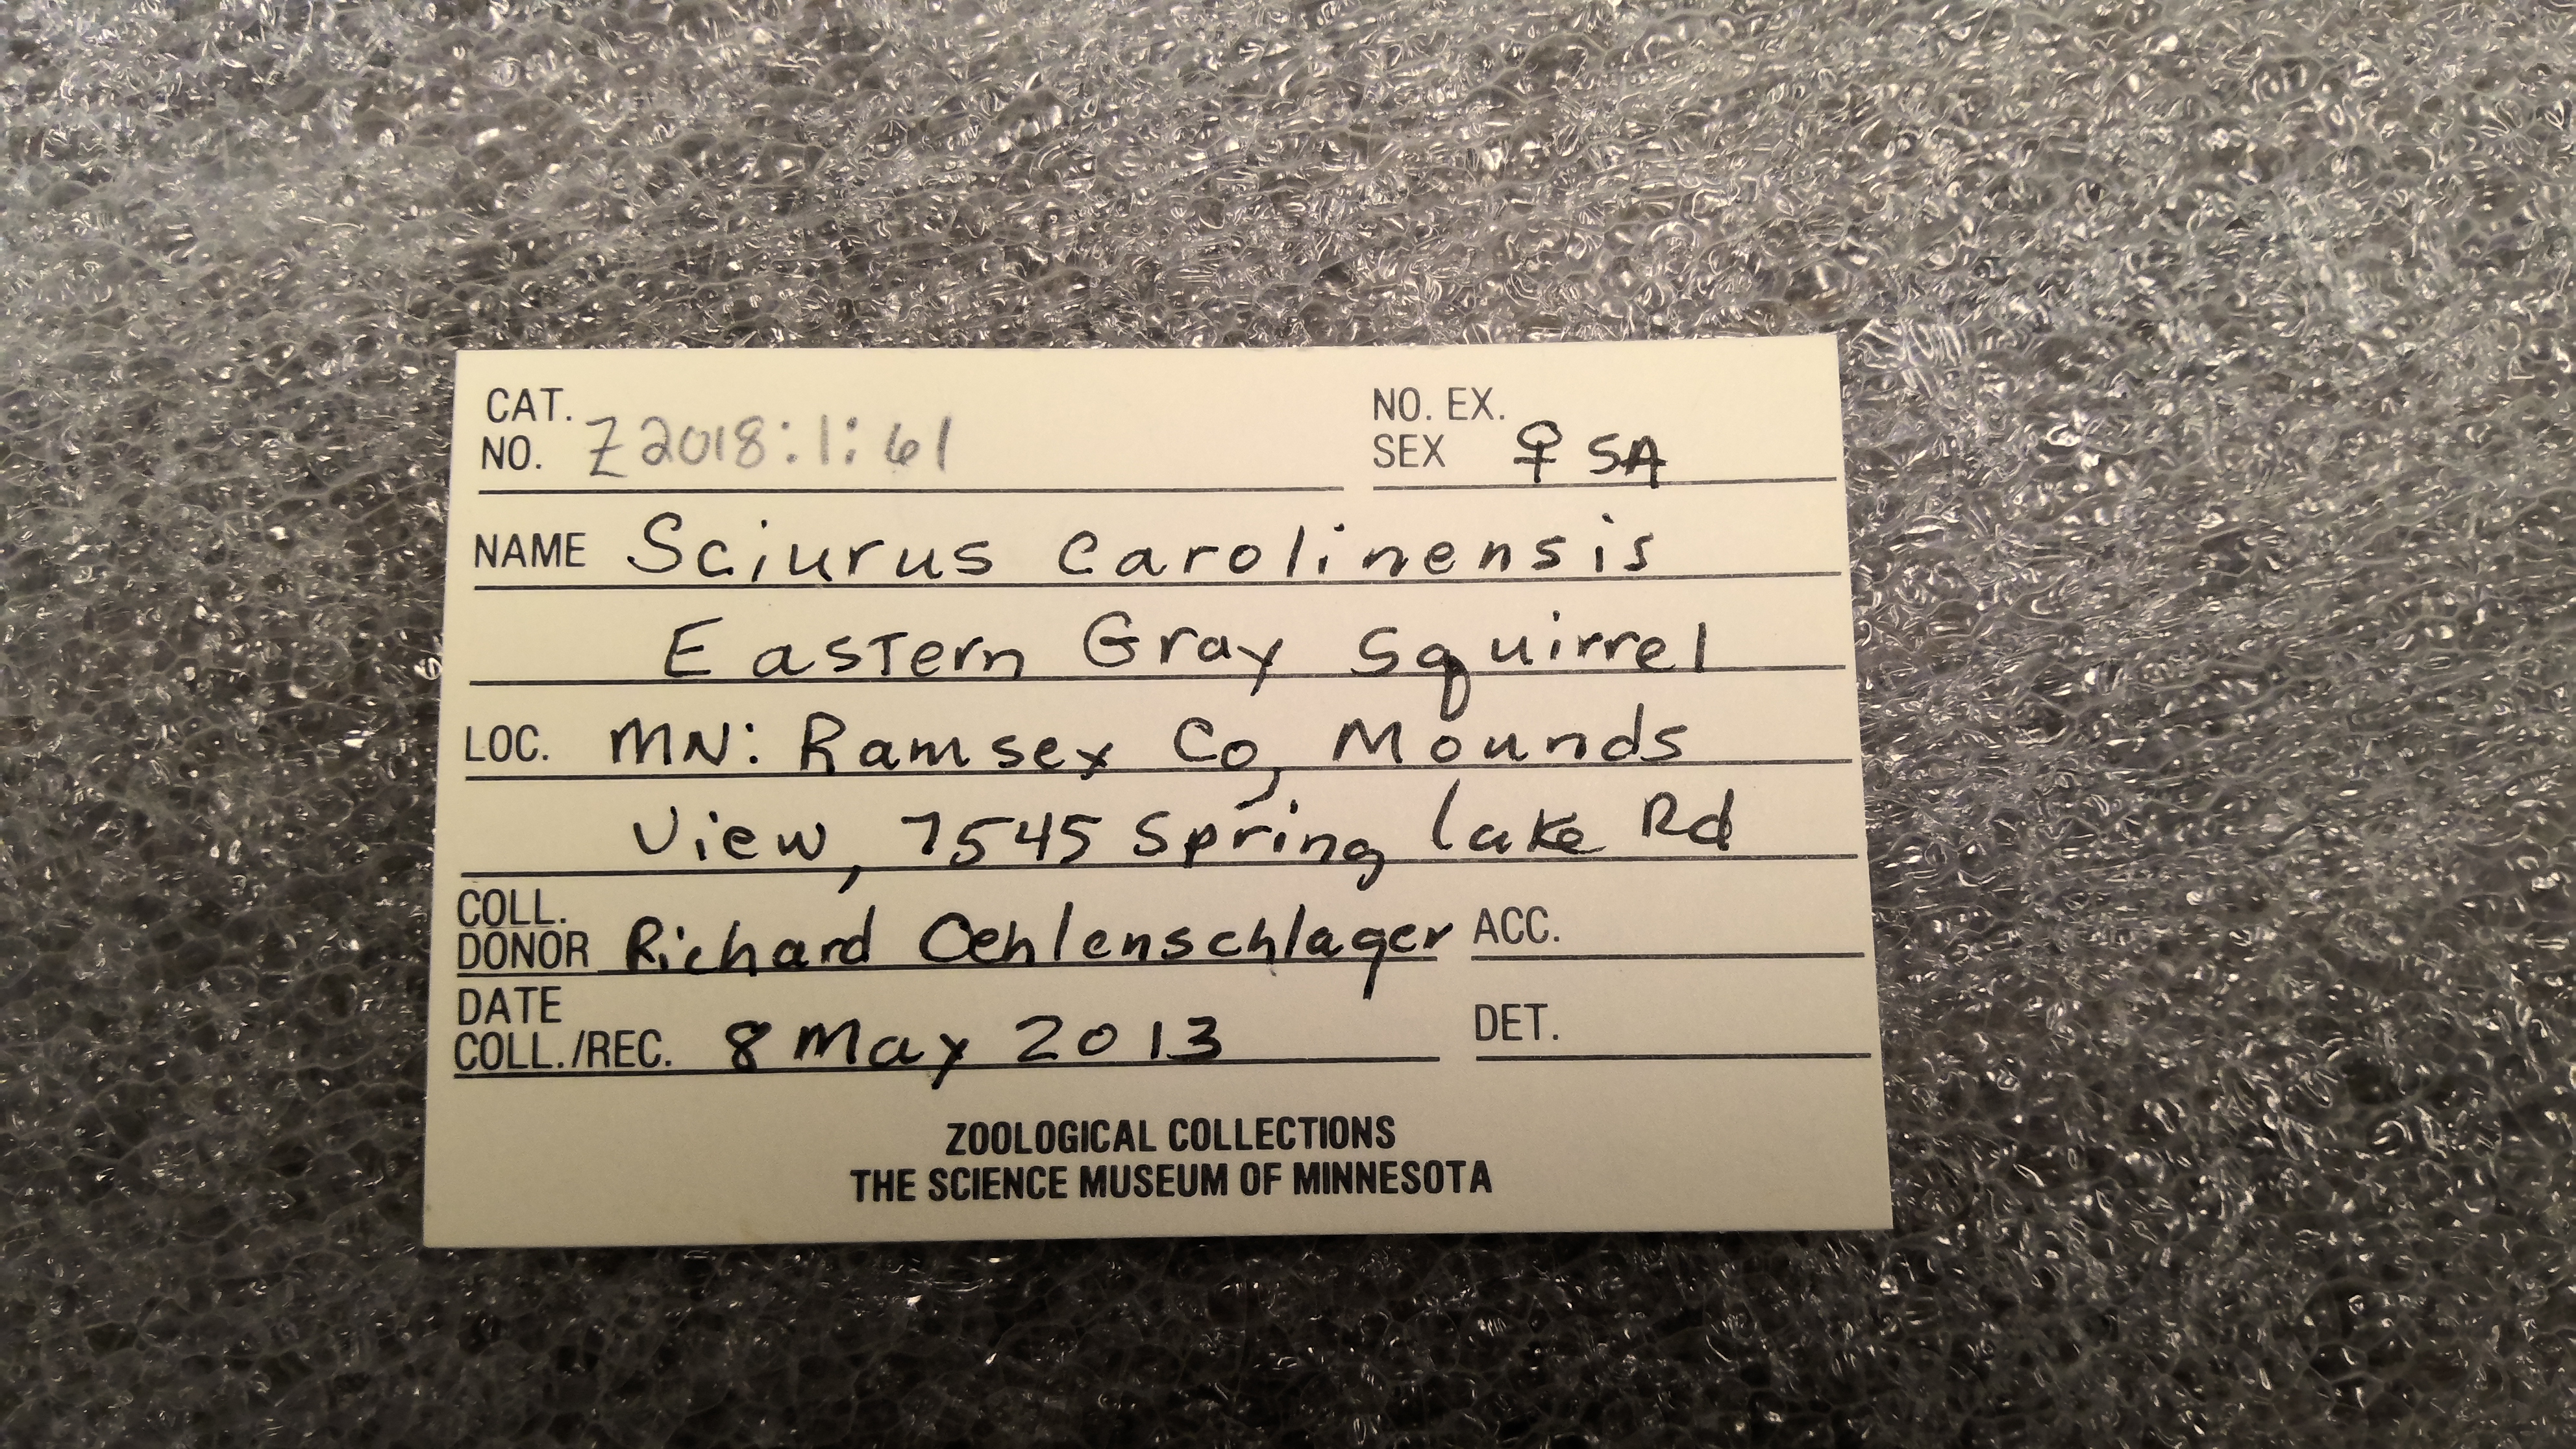 CAT. NO. Z2018:1:61 NO. EX. SEX ♀ SA
NAME Sciurus carolinensis
Eastern Gray Squirrel
LOC. MN: Ramsey Co, Mounds
View, 7545 Spring lake Rd
COLL. DONOR Richard Oehlenschlager ACC.
DATE COLL./REC. 8 May 2013 DET.
ZOOLOGICAL COLLECTIONS
THE SCIENCE MUSEUM OF MINNESOTA